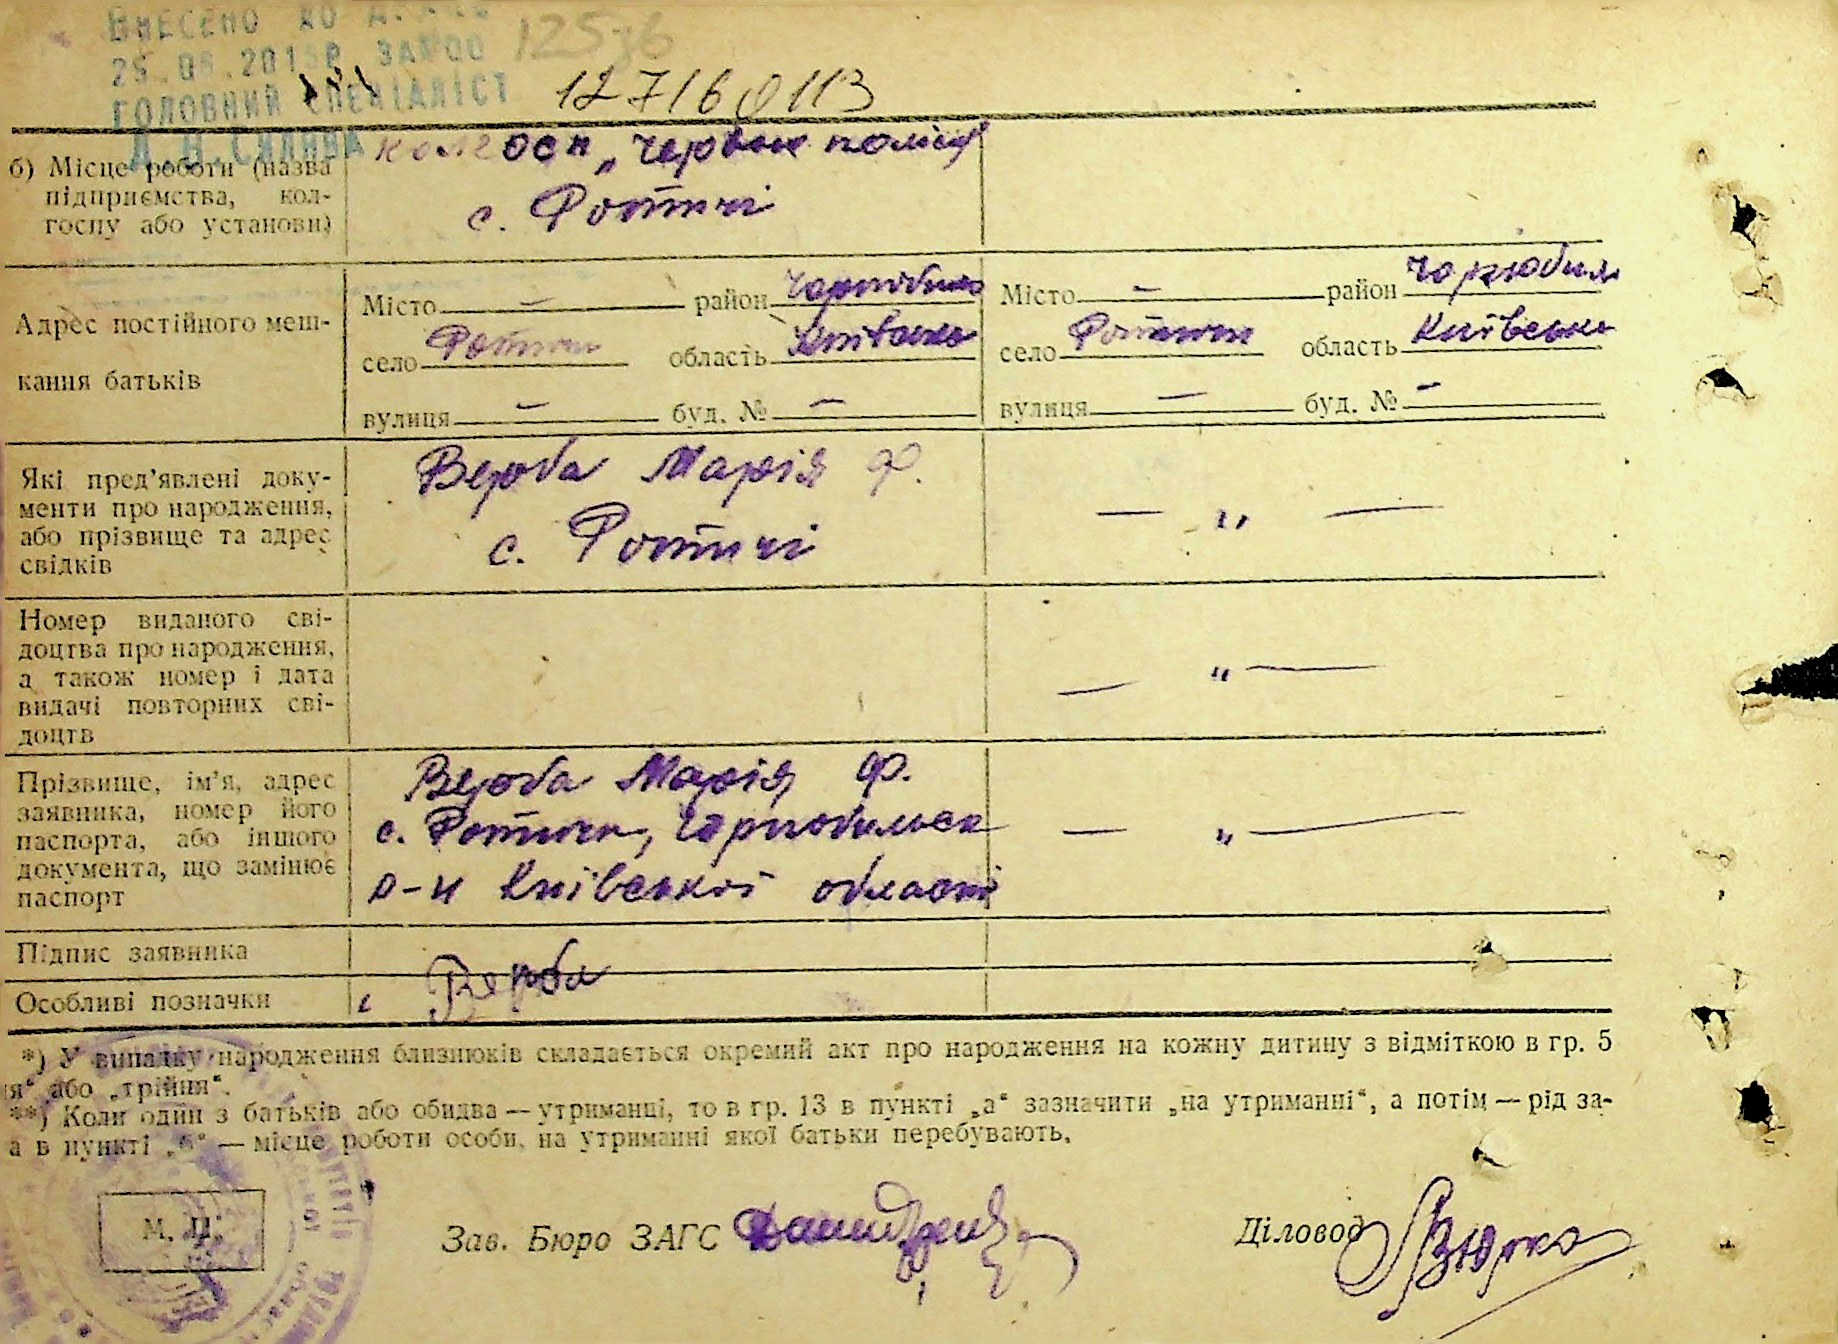 ВНЕСЕНО ДО
125зб
ГОЛОВНИЙ СПЕЦІАЛІСТ
б) Місце роботи (назва
підприємства, кол-
госпу або установи)
колгосп „Червоне полісся"
с. Ротичі
Адрес постійного меш-
кання батьків
Місто — район Чорнобиль
село область Київська
вулиця — буд. № —
Місто — район Чорнобиль
село область Київська
вулиця — буд. № —
Які пред'явлені доку-
менти про народження,
або прізвище та адрес
свідків
Верба Марія Ф.
с. Ротичі
— „ —
Номер виданого сві-
доцтва про народження,
а також номер і дата
видачі повторних сві-
доцтв
— „ —
Прізвище, ім'я, адрес
заявника, номер його
паспорта, або іншого
документа, що замінює
паспорт
Верба Марія Ф.
с. Ротичи, Чорнобильск
р-н Київської області
— „ —
Підпис заявника
Верба
Особливі позначки
*) У випадку народження близнюків складається окремий акт про народження на кожну дитину з відміткою в гр. 5
я“ або „трійня“.
**) Коли один з батьків або обидва — утриманці, то в гр. 13 в пункті „а“ зазначити „на утриманні“, а потім — рід за-
а в пункті „б“ — місце роботи особи, на утриманні якої батьки перебувають.
М. П.
Зав. Бюро ЗАГС
Діловод